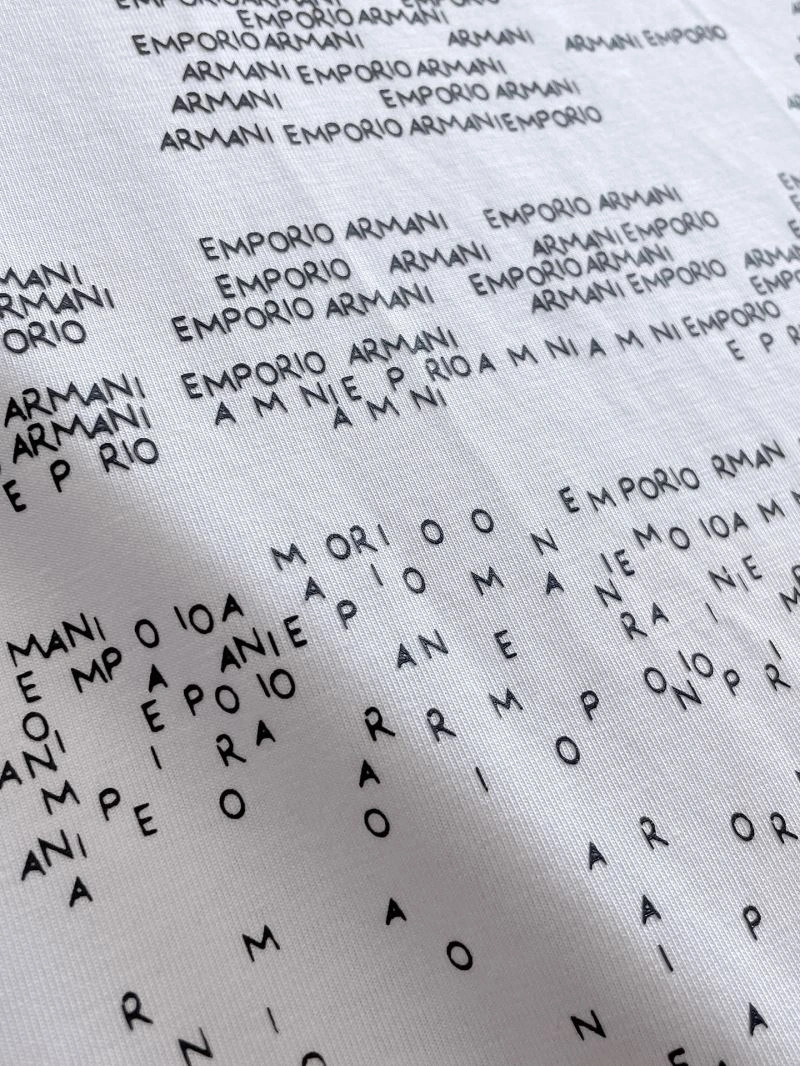 EMPORIO ARMANI EMPORIO
EMPORIO ARMANI
EMPORIO ARMANI ARMANI ARMANI EMPORIO
ARMANI EMPORIO ARMANI
ARMANI EMPORIO ARMANI
ARMANI EMPORIO ARMANI EMPORIO
EMPORIO ARMANI EMPORIO ARMANI
MANI EMPORIO ARMANI ARMANI EMPORIO
RMANI EMPORIO ARMANI EMPORIO ARMANI
ORIO ARMANI EMPORIO ARMA
EMPORIO ARMANI
ARMANI A M NI E P RIO A M NI A M NI EMPORIO
ARMANI A M NI E P R
E P RIO
EMPORIO RMAN
M ORI O O N IEMO IOA M N
MANI O IOA A I O M A N NIE
E MP A ANIE P AN E RA I M
OI E POIO
ANI I R A R R M P O IO N P R I
M P E O A I O
ANI O A R O R
A
M A O A P
I
R N I N A
E A